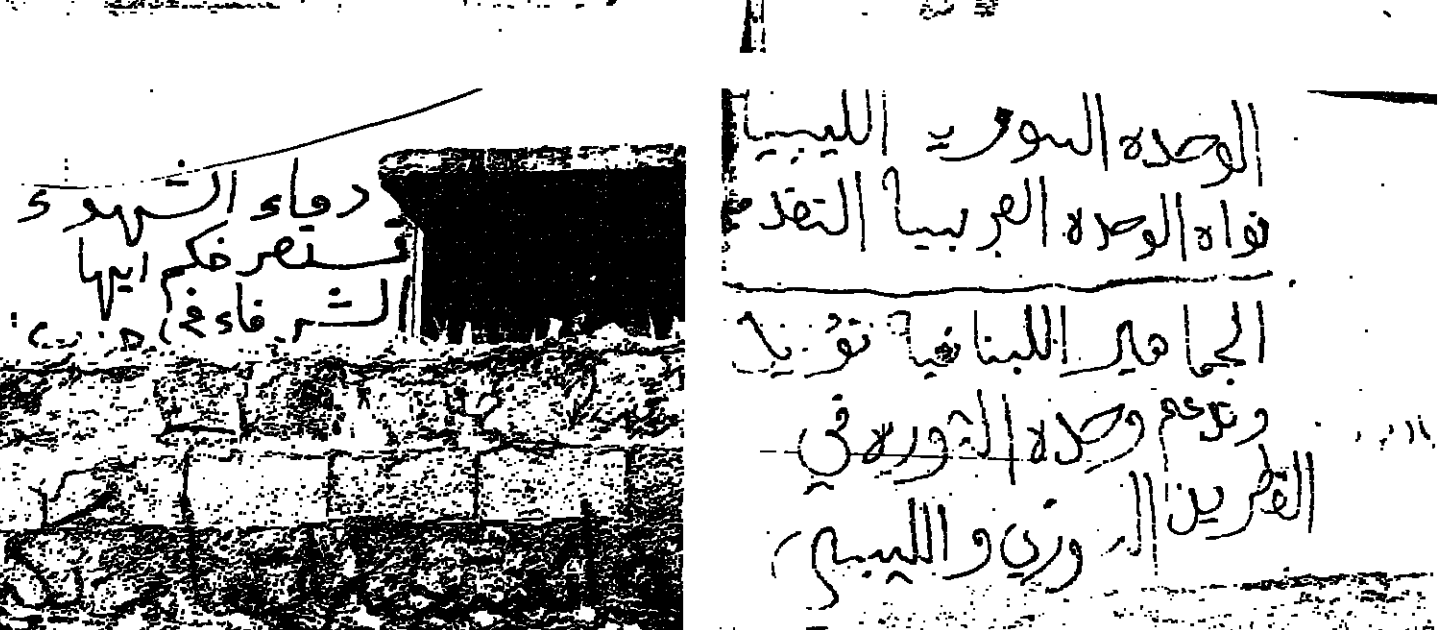 الوحده السوريه الليبيا
نواه الوحده العربيا التقدم
الجماهير اللبنانيا تؤيد
وتدعم وحده الثوره في
القطرين السوري والليبي
دماء الشهداء
تستصرخكم ايها
الشرفاء في